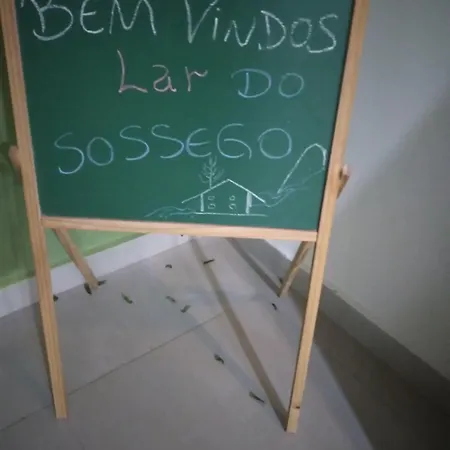 BEM VINDOS
Lar DO
SOSSEGO